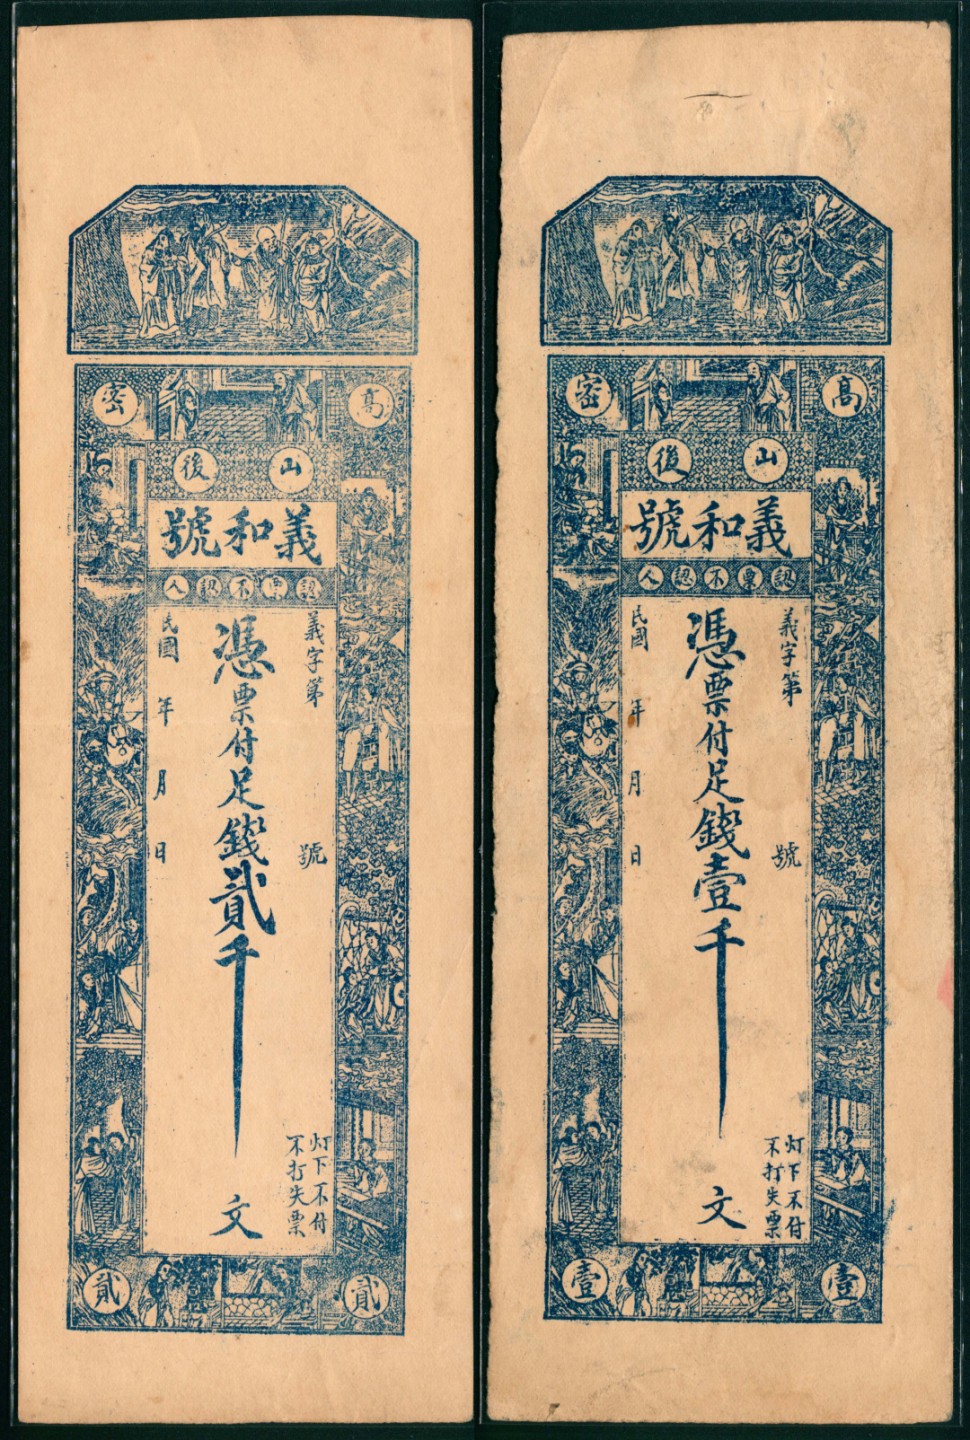 高密
山後
義和號
認票不認人
義字第 號
憑票付足錢貳千文
民國 年 月 日
灯下不付
不打失票
貳 貳
高密
山後
義和號
認票不認人
義字第 號
憑票付足錢壹千文
民國 年 月 日
灯下不付
不打失票
壹 壹